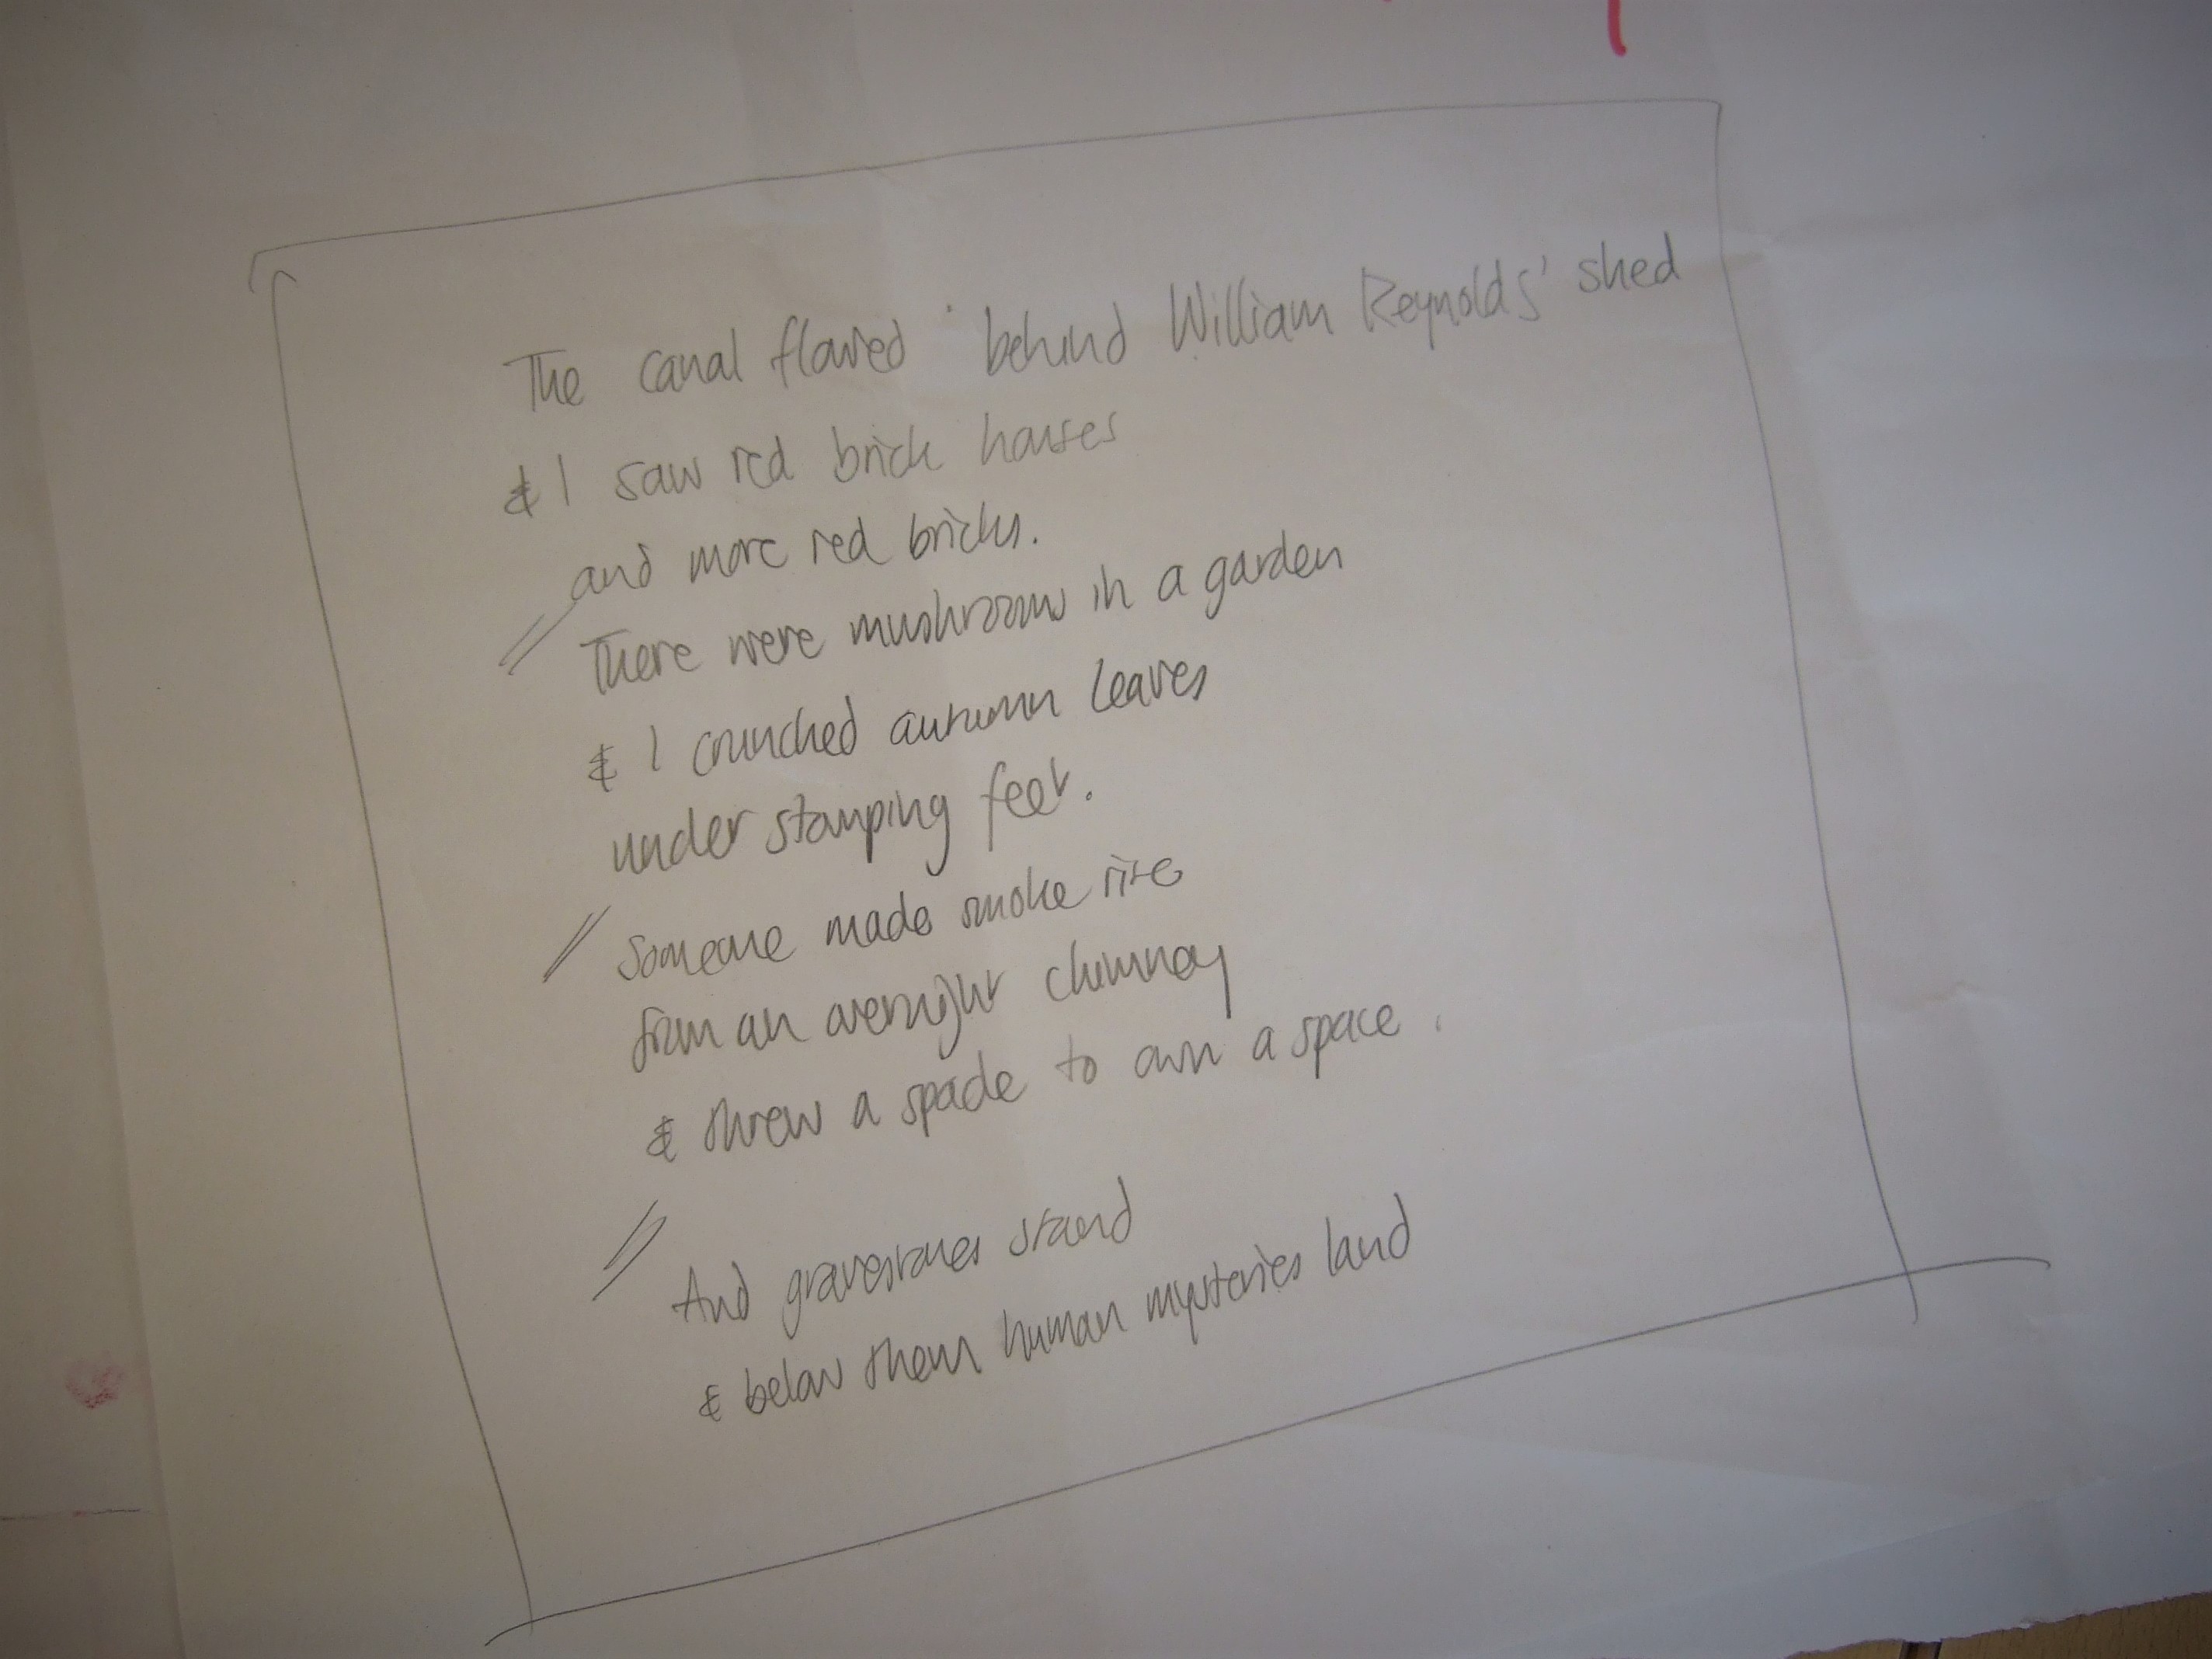 The canal flowed behind William Reynolds' shed
& I saw red brick houses
and more red bricks.
// There were mushrooms in a garden
& I crunched autumn leaves
under stamping feet.
// Someone made smoke rise
from an overnight chimney
& threw a spade to own a space.
// And gravestones stand
& below them human mysteries land